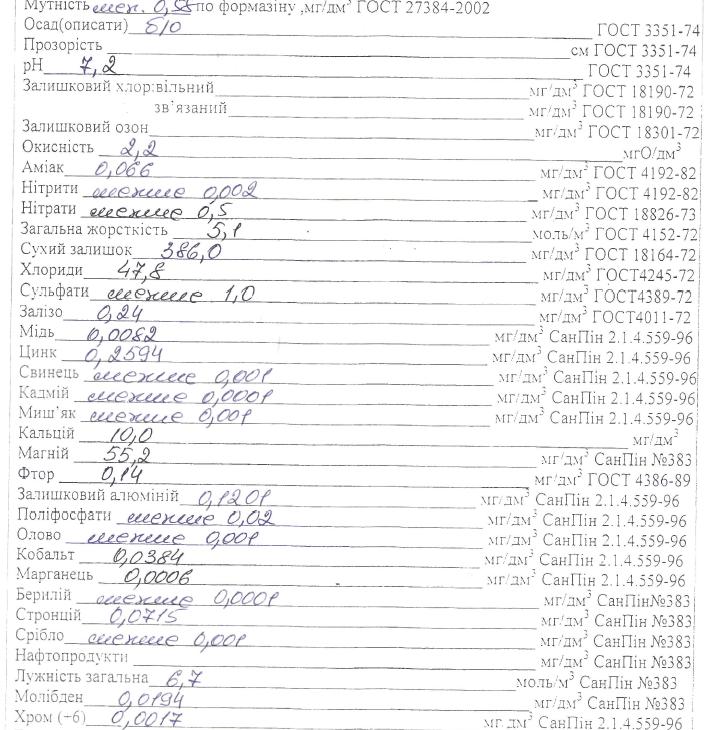 Мутність мен. 0,58 по формазіну ,мг/дм³ ГОСТ 27384-2002
Осад(описати) б/о ГОСТ 3351-74
Прозорість см ГОСТ 3351-74
рН 7,2 ГОСТ 3351-74
Залишковий хлор:вільний мг/дм³ ГОСТ 18190-72
зв'язаний мг/дм³ ГОСТ 18190-72
Залишковий озон мг/дм³ ГОСТ 18301-72
Окисність 2,2 мгО/дм³
Аміак 0,066 мг/дм³ ГОСТ 4192-82
Нітрити менше 0,002 мг/дм³ ГОСТ 4192-82
Нітрати менше 0,5 мг/дм³ ГОСТ 18826-73
Загальна жорсткість 5,1 моль/м³ ГОСТ 4152-72
Сухий залишок 386,0 мг/дм³ ГОСТ 18164-72
Хлориди 47,8 мг/дм³ ГОСТ4245-72
Сульфати менше 1,0 мг/дм³ ГОСТ4389-72
Залізо 0,24 мг/дм³ ГОСТ4011-72
Мідь 0,0082 мг/дм³ СанПін 2.1.4.559-96
Цинк 0,2594 мг/дм³ СанПін 2.1.4.559-96
Свинець менше 0,001 мг/дм³ СанПін 2.1.4.559-96
Кадмій менше 0,0001 мг/дм³ СанПін 2.1.4.559-96
Миш'як менше 0,001 мг/дм³ СанПін 2.1.4.559-96
Кальцій 10,0 мг/дм³
Магній 55,2 мг/дм³ СанПін №383
Фтор 0,14 мг/дм³ ГОСТ 4386-89
Залишковий алюміній 0,1201 мг/дм³ СанПін 2.1.4.559-96
Поліфосфати менше 0,02 мг/дм³ СанПін 2.1.4.559-96
Олово менше 0,001 мг/дм³ СанПін 2.1.4.559-96
Кобальт 0,0384 мг/дм³ СанПін 2.1.4.559-96
Марганець 0,0006 мг/дм³ СанПін 2.1.4.559-96
Берилій менше 0,0001 мг/дм³ СанПін№383
Стронцій 0,0715 мг/дм³ СанПін №383
Срібло менше 0,001 мг/дм³ СанПін №383
Нафтопродукти мг/дм³ СанПін №383
Лужність загальна 6,7 моль/м³ СанПін №383
Молібден 0,0194 мг/дм³ СанПін №383
Хром (+6) 0,0017 мг.дм³ СанПін 2.1.4.559-96